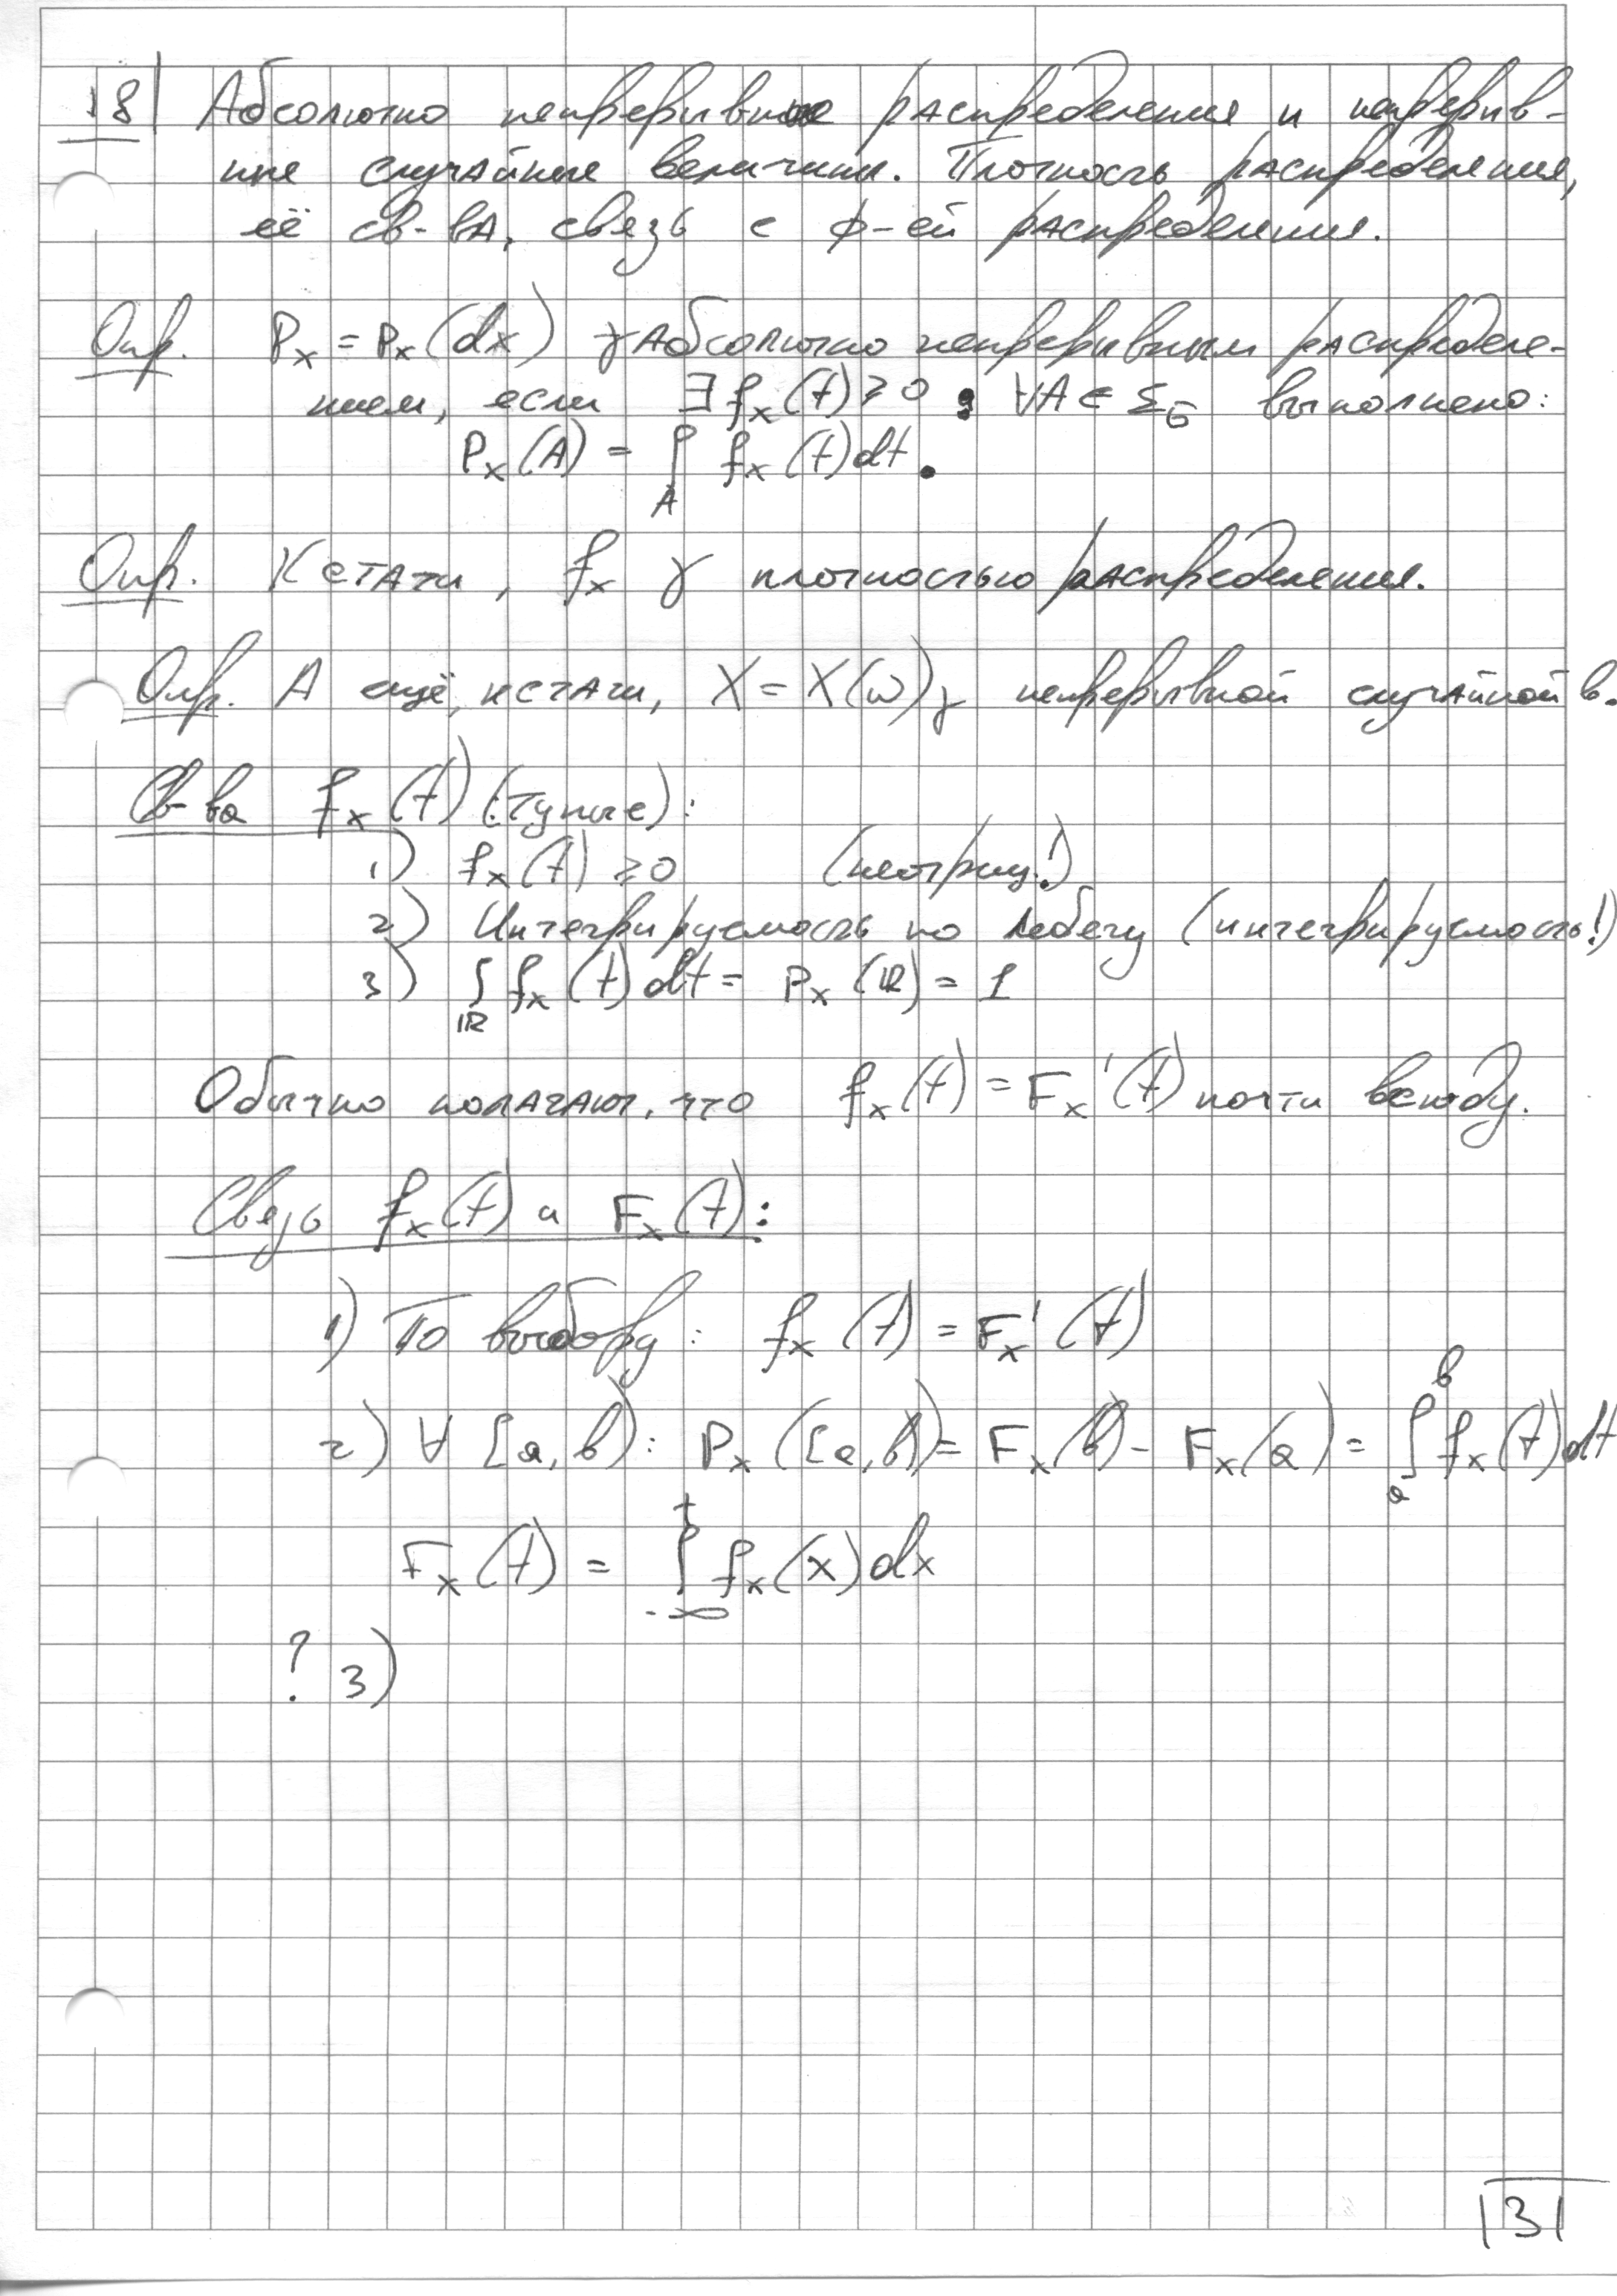 18| Абсолютно непрерывные распределения и непрерыв-
ные случайные величины. Плотность распределения,
её св-вА, связь с ф-ей распределения.
Опр. Pₓ = Pₓ(dx) γ Абсолютно непрерывным распределе-
нием, если ∃ fₓ(t) ≥ 0 : ∀A ∈ Σ_б выполнено:
Pₓ(A) = ∫_A fₓ(t)dt.
Опр. Кстати, fₓ γ плотностью распределения.
Опр. А ещё, кстати, X = X(ω) γ непрерывной случайной в.
Св-ва fₓ(t) (тупые):
1) fₓ(t) ≥ 0 (неотриц.!)
2) Интегрируемость по Лебегу (интегрируемость!)
3) ∫_ℝ fₓ(t)dt = Pₓ(ℝ) = 1
Обычно полагают, что fₓ(t) = Fₓ'(t) почти всюду.
Связь fₓ(t) и Fₓ(t):
1) По выбору: fₓ(t) = Fₓ'(t)
2) ∀ [a, b): Pₓ([a, b)) = Fₓ(b) - Fₓ(a) = ∫_a^b fₓ(t)dt
Fₓ(t) = ∫_{-∞}^t fₓ(x)dx
? 3)
|31